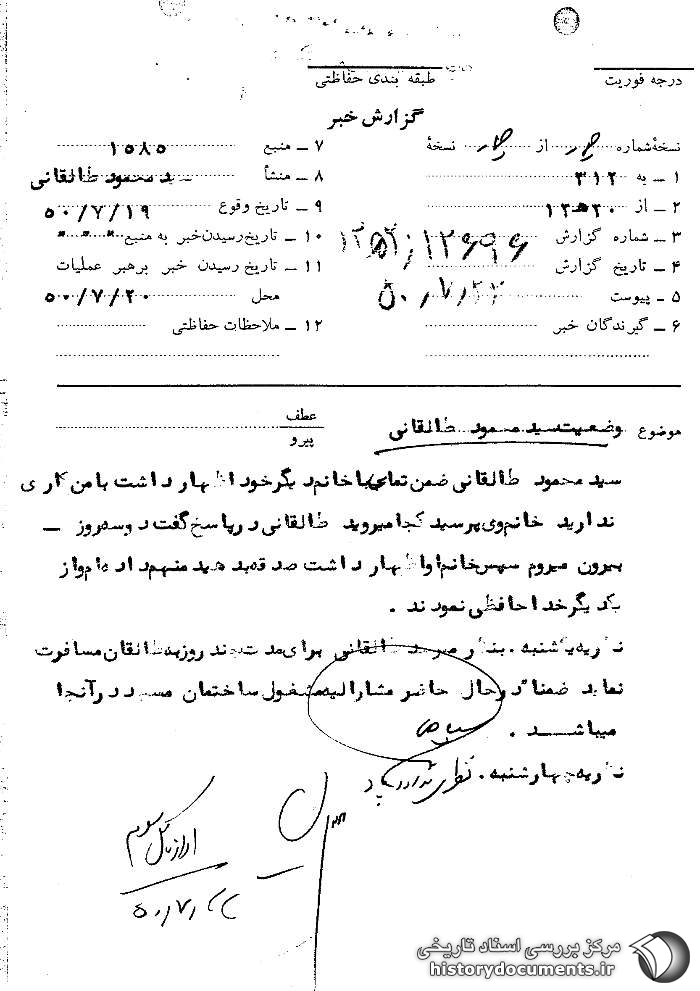 درجه فوریت
طبقه بندی حفاظتی
گزارش خبر
نسخهٔ شماره چهار از چهار نسخهٔ
۱ ــ به ۳۱۲
۲ ــ از ۱۲ﻫ۲۰
۳ ــ شماره گزارش ۱۲۶۹۶
۴ ــ تاریخ گزارش ۵۰/۷/۲۲
۵ ــ پیوست
۶ ــ گیرندگان خبر
۷ ــ منبع ۱۵۸۵
۸ ــ منشأ سید محمود طالقانی
۹ ــ تاریخ وقوع ۵۰/۷/۱۹
۱۰ ــ تاریخ رسیدن خبر به منبع
۱۱ ــ تاریخ رسیدن خبر برهبر عملیات
محل ۵۰/۷/۲۰
۱۲ ــ ملاحظات حفاظتی
موضوع وضعیت سید محمود طالقانی
عطف
پیرو
سید محمود طالقانی ضمن تماس با خانم دیگر خود اظهار داشت با من کاری
ندارید خانم وی پرسید کجا میروید طالقانی در پاسخ گفت دو سه روز ــ
بیرون میروم سپس خانم او اظهار داشت صدقه بدهید منهم داده ام و از
یکدیگر خداحافظی نمودند .
نظریه یکشنبه . بنظر میرسد طالقانی برای مدت چند روز به طالقان مسافرت
نماید ضمنا" در حال حاضر مشارالیه مشغول ساختمان مسجد در آنجا
میباشد .
نظریه چهارشنبه . نظری ندارد
اداره کل سوم
۵۰/۷/۲۲
مرکز بررسی اسناد تاریخی
historydocuments.ir